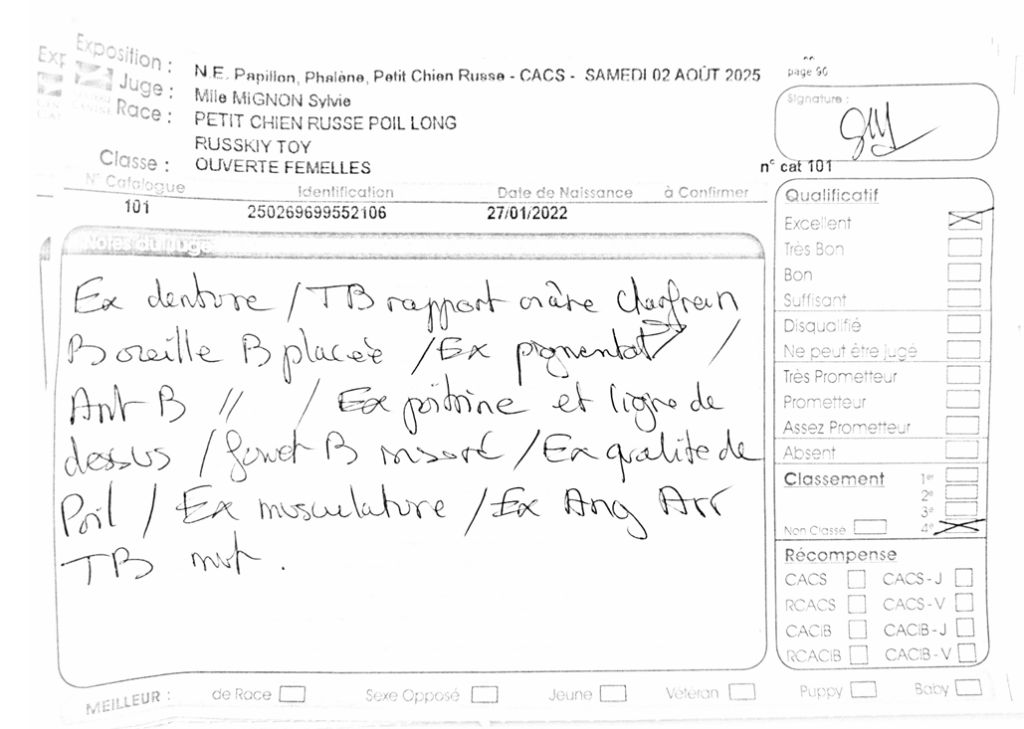 Exposition : N.E. Papillon, Phalène, Petit Chien Russe - CACS - SAMEDI 02 AOÛT 2025
page 90
Juge : Mlle MIGNON Sylvie
Race : PETIT CHIEN RUSSE POIL LONG
RUSSKIY TOY
Classe : OUVERTE FEMELLES
Signature :
n° cat 101
N° Catalogue Identification Date de Naissance à Confirmer
101 250269699552106 27/01/2022
Notes du juge
Ex denture / TB rapport crâne chanfrein
B oreille B placée / Ex pigmentat° /
Ant B // / Ex poitrine et ligne de
dessus / fouet B inséré / Ex qualité de
Poil / Ex musculature / Ex Ang Arr
TB mvt.
Qualificatif
Excellent
Très Bon
Bon
Suffisant
Disqualifié
Ne peut être jugé
Très Prometteur
Prometteur
Assez Prometteur
Absent
Classement 1er
2e
3e
Non Classé 4e
Récompense
CACS CACS-J
RCACS CACS-V
CACIB CACIB-J
RCACIB CACIB-V
MEILLEUR : de Race Sexe Opposé Jeune Vétéran Puppy Baby